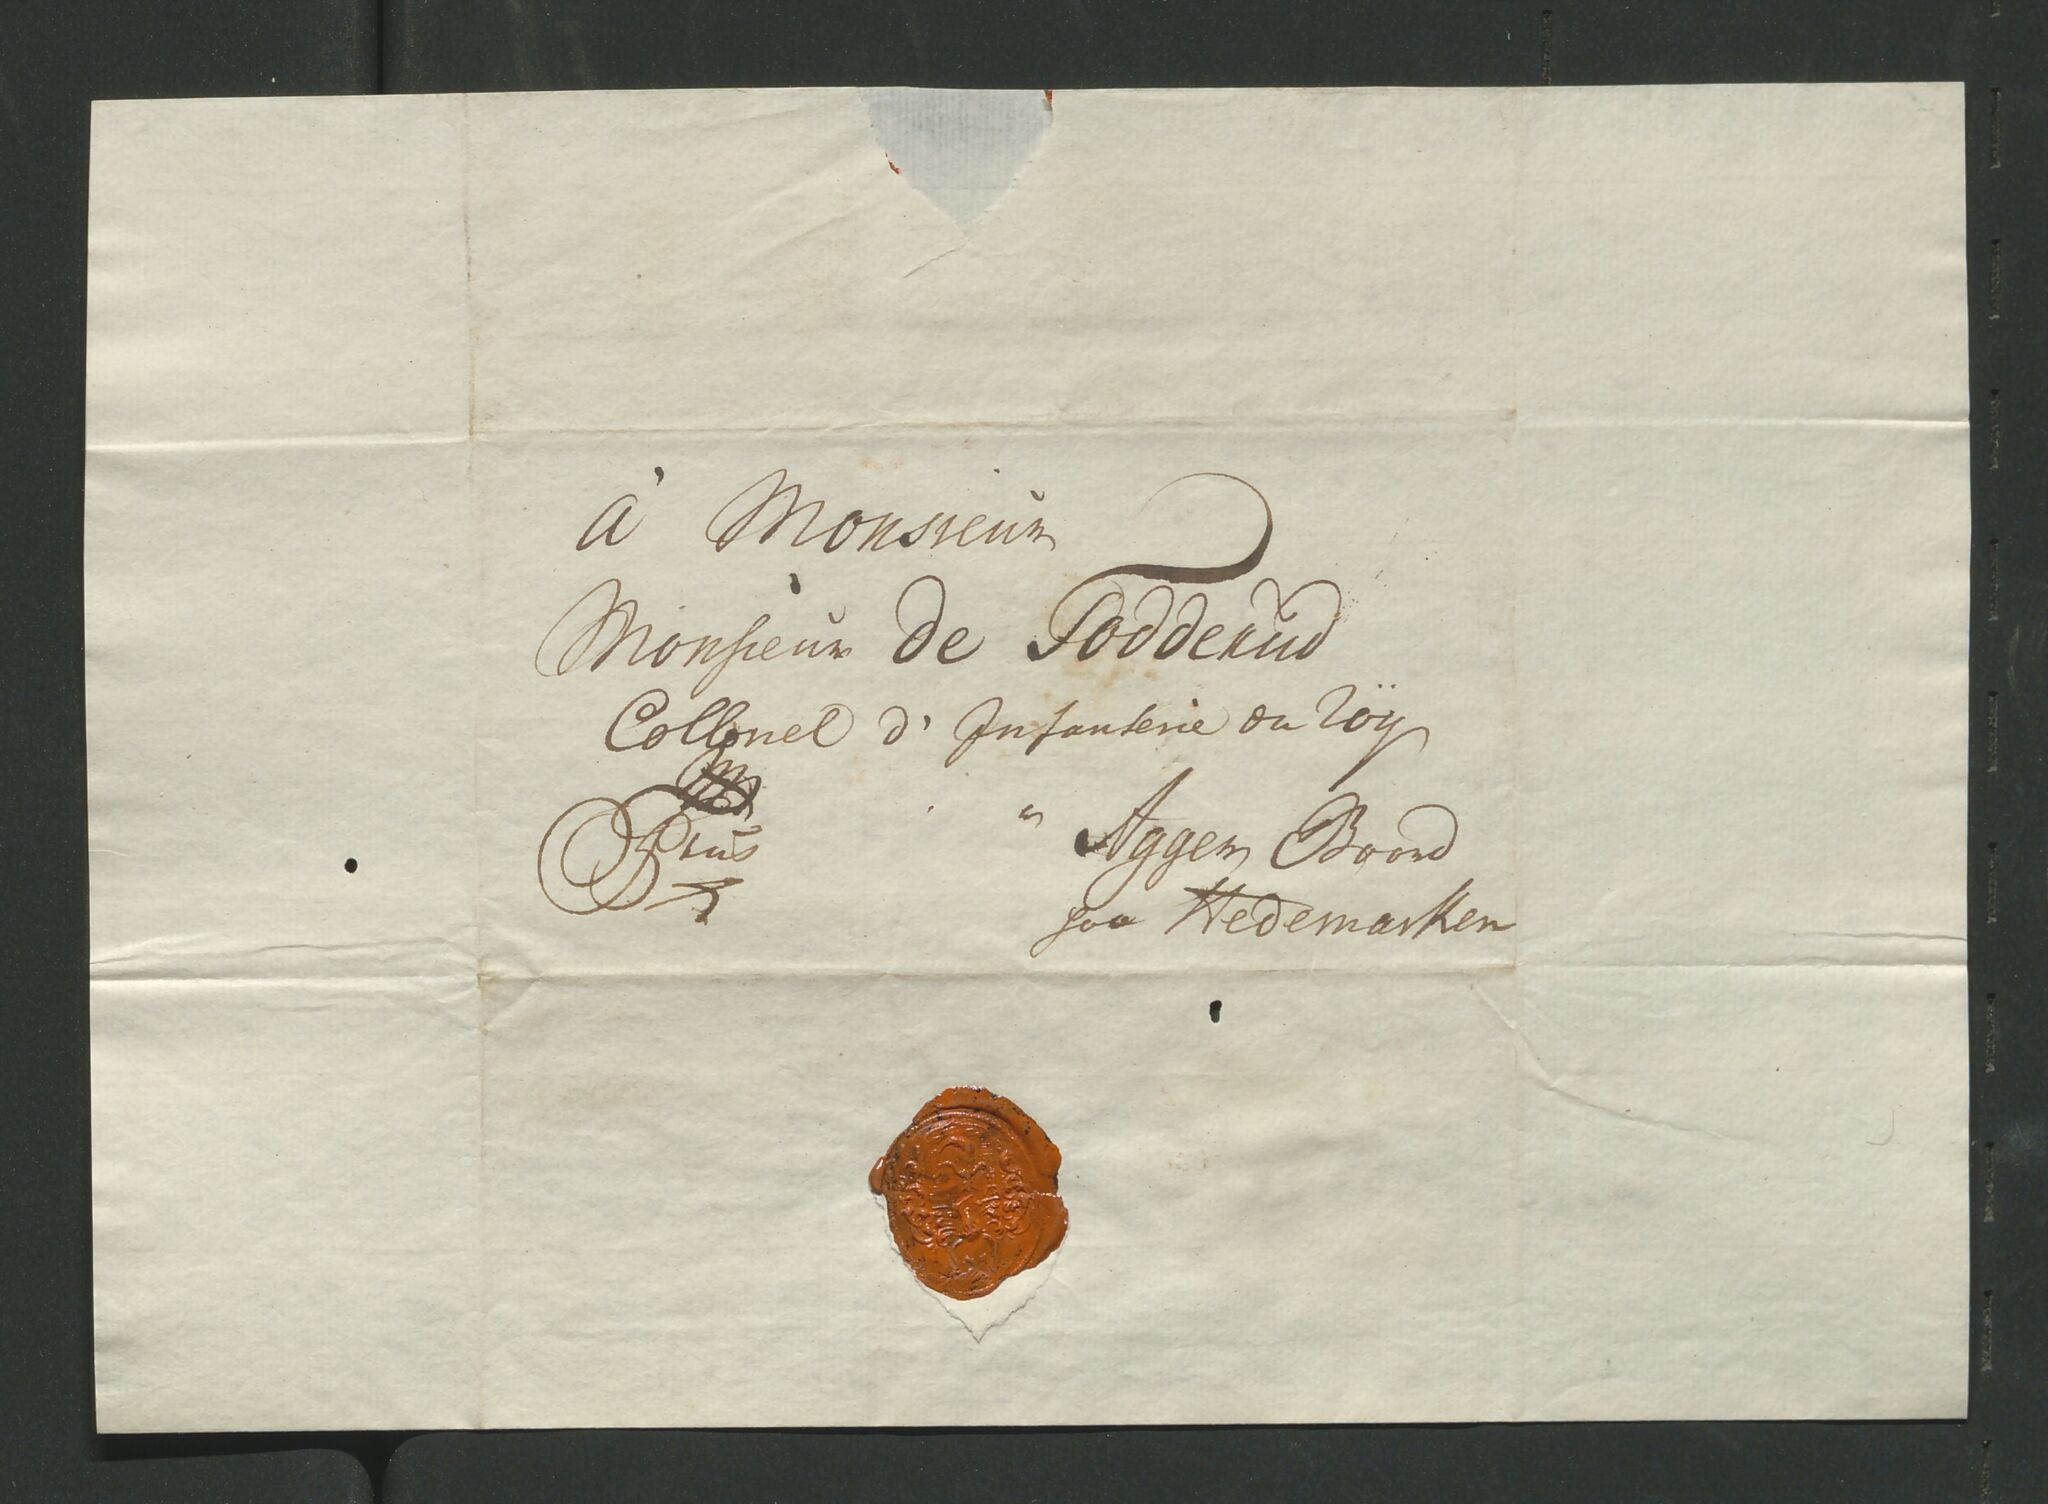 à Monsieur
Monsieur de Todderud
Collonel d' Infanterie du Röy
" Agger Boord
paa Hedemarken